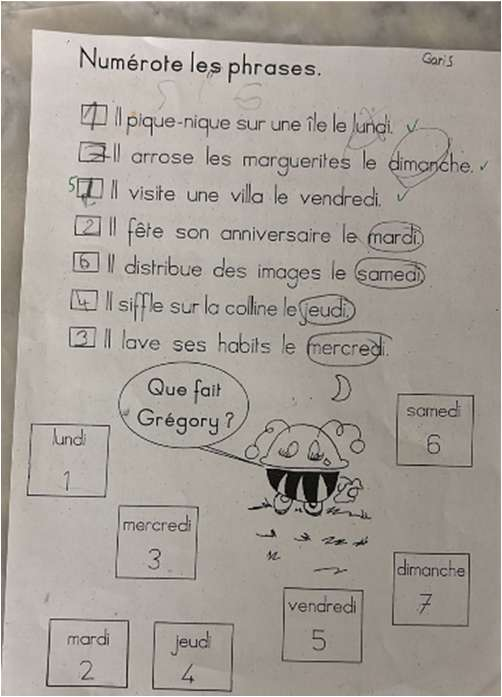 Garis
Numérote les phrases.
1 Il pique-nique sur une île le lundi.
7 Il arrose les marguerites le dimanche.
5 1 Il visite une villa le vendredi.
2 Il fête son anniversaire le mardi.
6 Il distribue des images le samedi.
4 Il siffle sur la colline le jeudi.
3 Il lave ses habits le mercredi.
Que fait
Grégory ?
samedi
6
lundi
1
mercredi
3
dimanche
7
vendredi
5
mardi
2
jeudi
4